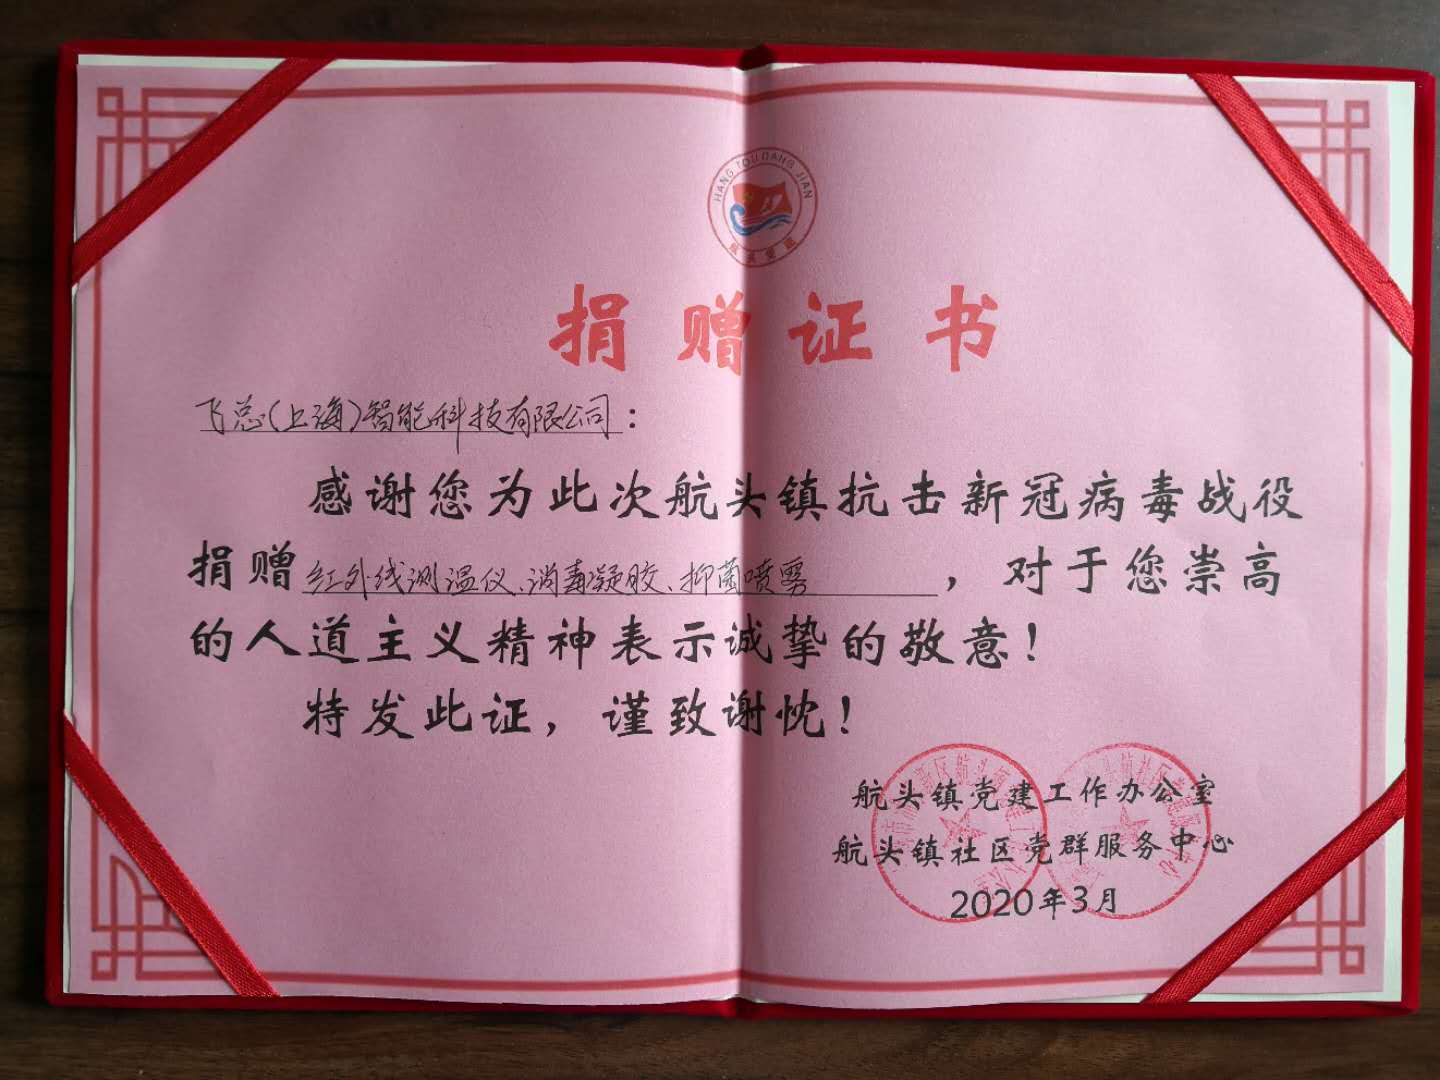 HANG TOU DANG JIAN
航头党建
捐赠证书
飞总(上海)智能科技有限公司：
感谢您为此次航头镇抗击新冠病毒战役
捐赠红外线测温仪、消毒凝胶、抑菌喷雾，对于您崇高
的人道主义精神表示诚挚的敬意！
特发此证，谨致谢忱！
航头镇党建工作办公室
航头镇社区党群服务中心
2020年3月